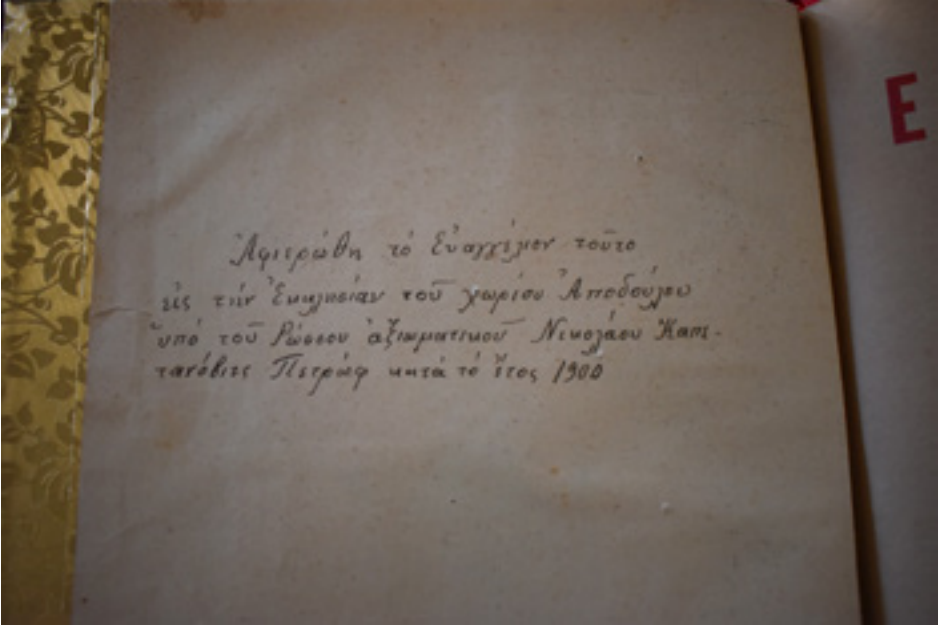 Ἀφιερώθη τό Εὐαγγέλιον τοῦτο
εἰς τήν Ἐκκλησίαν τοῦ χωρίου Ἀποδούλου
ὑπό τοῦ Ρώσσου ἀξιωματικοῦ Νικολάου Καπι-
τανόβιτς Πετρώφ κατά τό ἔτος 1900
E